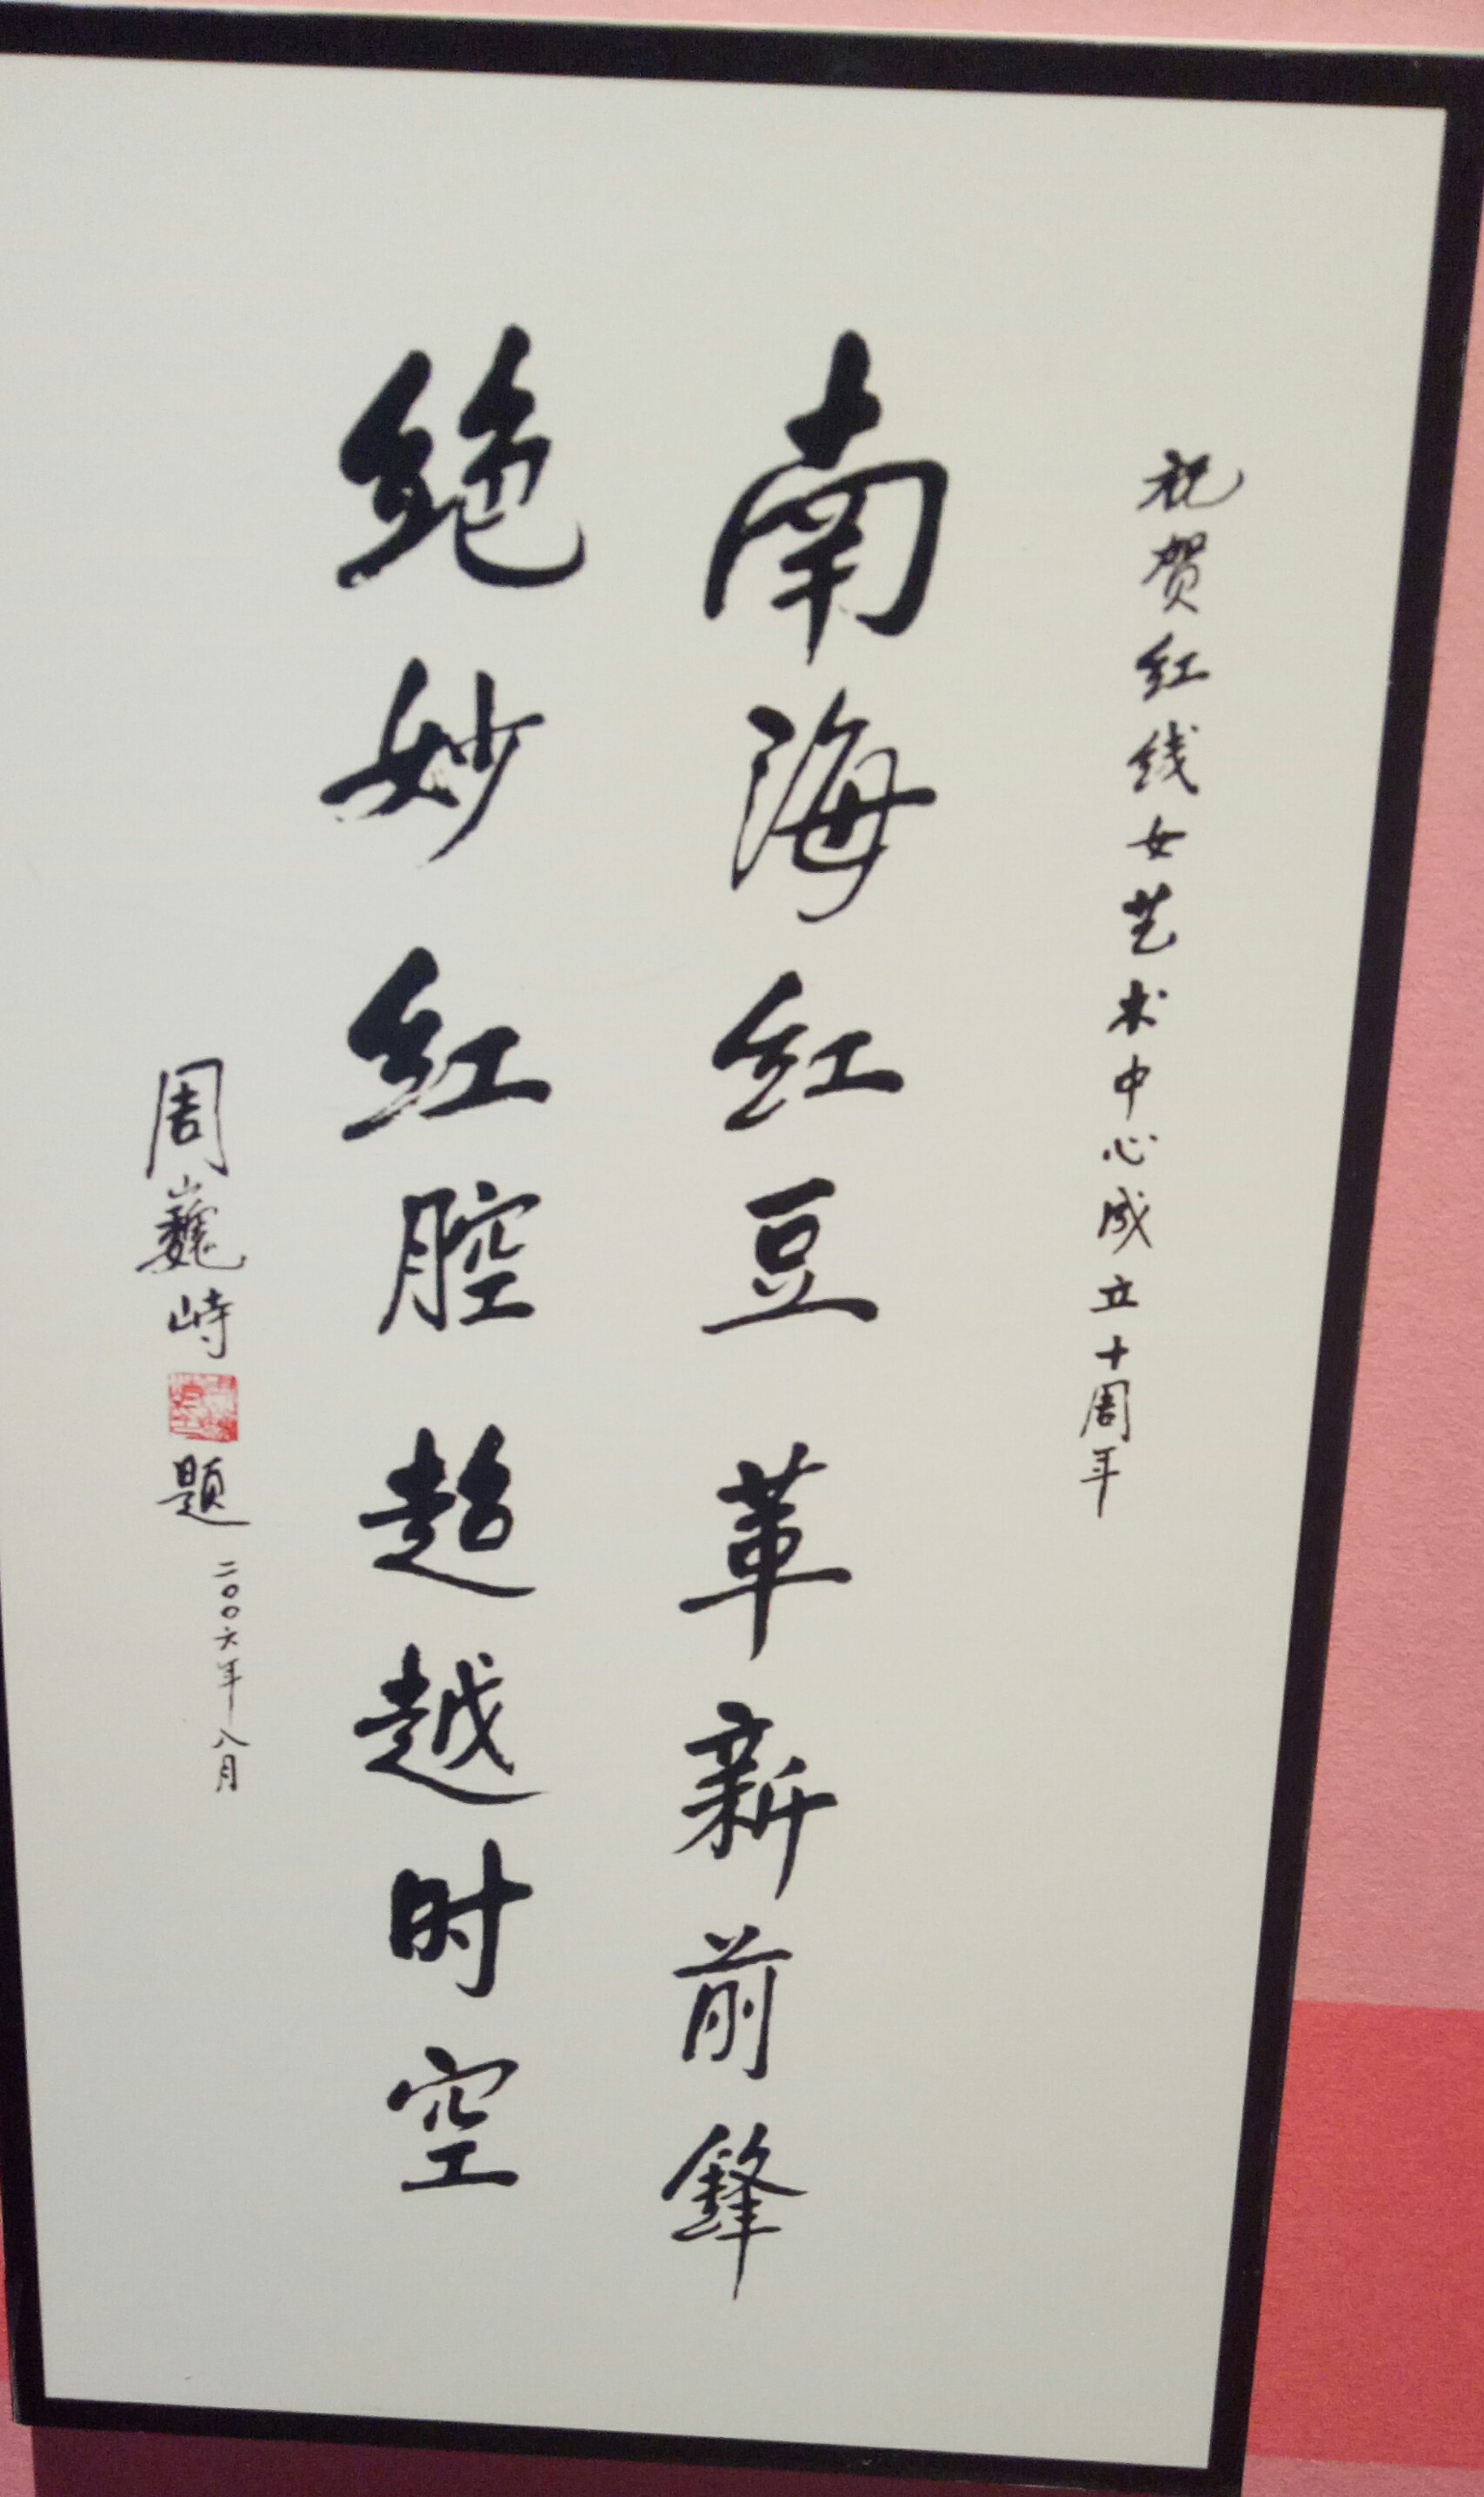 祝贺红线女艺术中心成立十周年
南海红豆 革新前鋒
绝妙红腔 超越时空
周巍峙 题
二〇〇六年八月